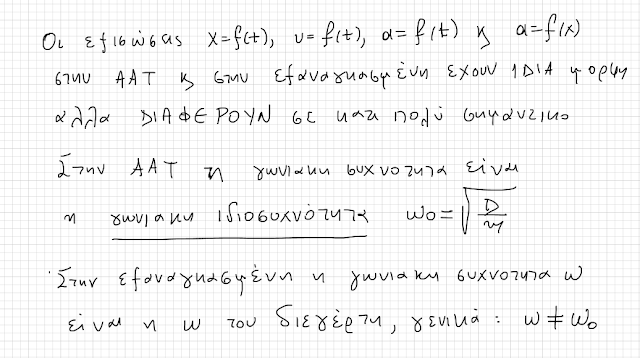 Οι εξισώσεις x=f(t), υ=f(t), α=f(t) κ α=f(x)
στην ΑΑΤ κ στην εξαναγκασμένη έχουν ΙΔΙΑ μορφή
αλλά ΔΙΑΦΕΡΟΥΝ σε κάτι πολύ σημαντικο
Στην ΑΑΤ η γωνιακη συχνοτητα είναι
η γωνιακη ιδιοσυχνότητα ω₀=√(D/m)
Στην εξαναγκασμένη η γωνιακη συχνοτητα ω
είναι η ω του διεγέρτη, γενικά: ω≠ω₀